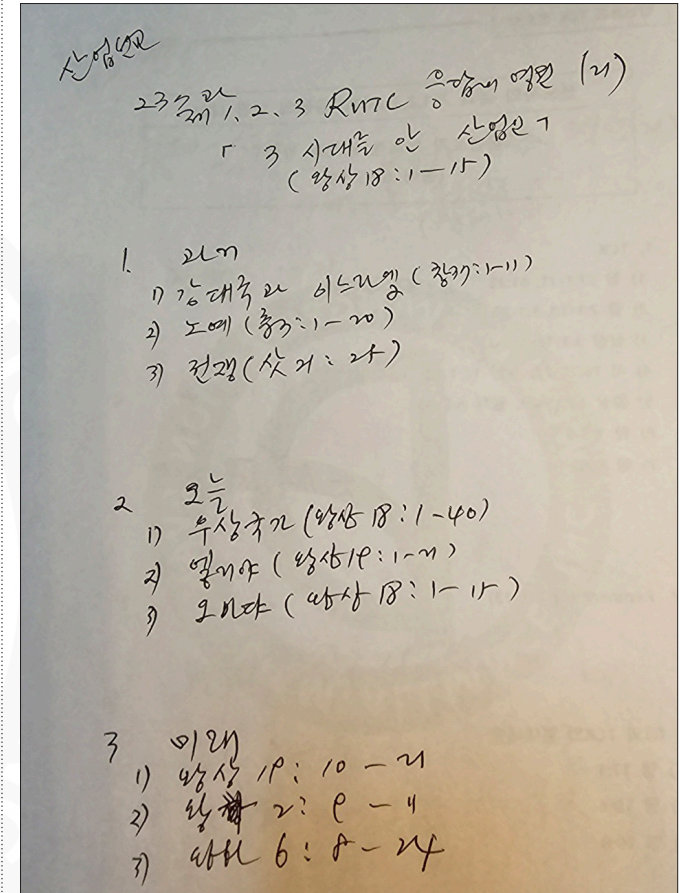 산업선교
23주제 1, 2, 3 RUTC 응답의 영원 (21)
「3 시대를 안 산업인」
(왕상 18:1-15)
1. 과거
1) 강대국과 이스라엘 (창37:1-11)
2) 노예 (출3:1-20)
3) 전쟁 (삿21:25)
2 오늘
1) 우상국가 (왕상 18:1-40)
2) 엘리야 (왕상19:1-21)
3) 오바댜 (왕상 18:1-15)
3 미래
1) 왕상 19:10-21
2) 왕하 2:9-11
3) 왕하 6:8-24